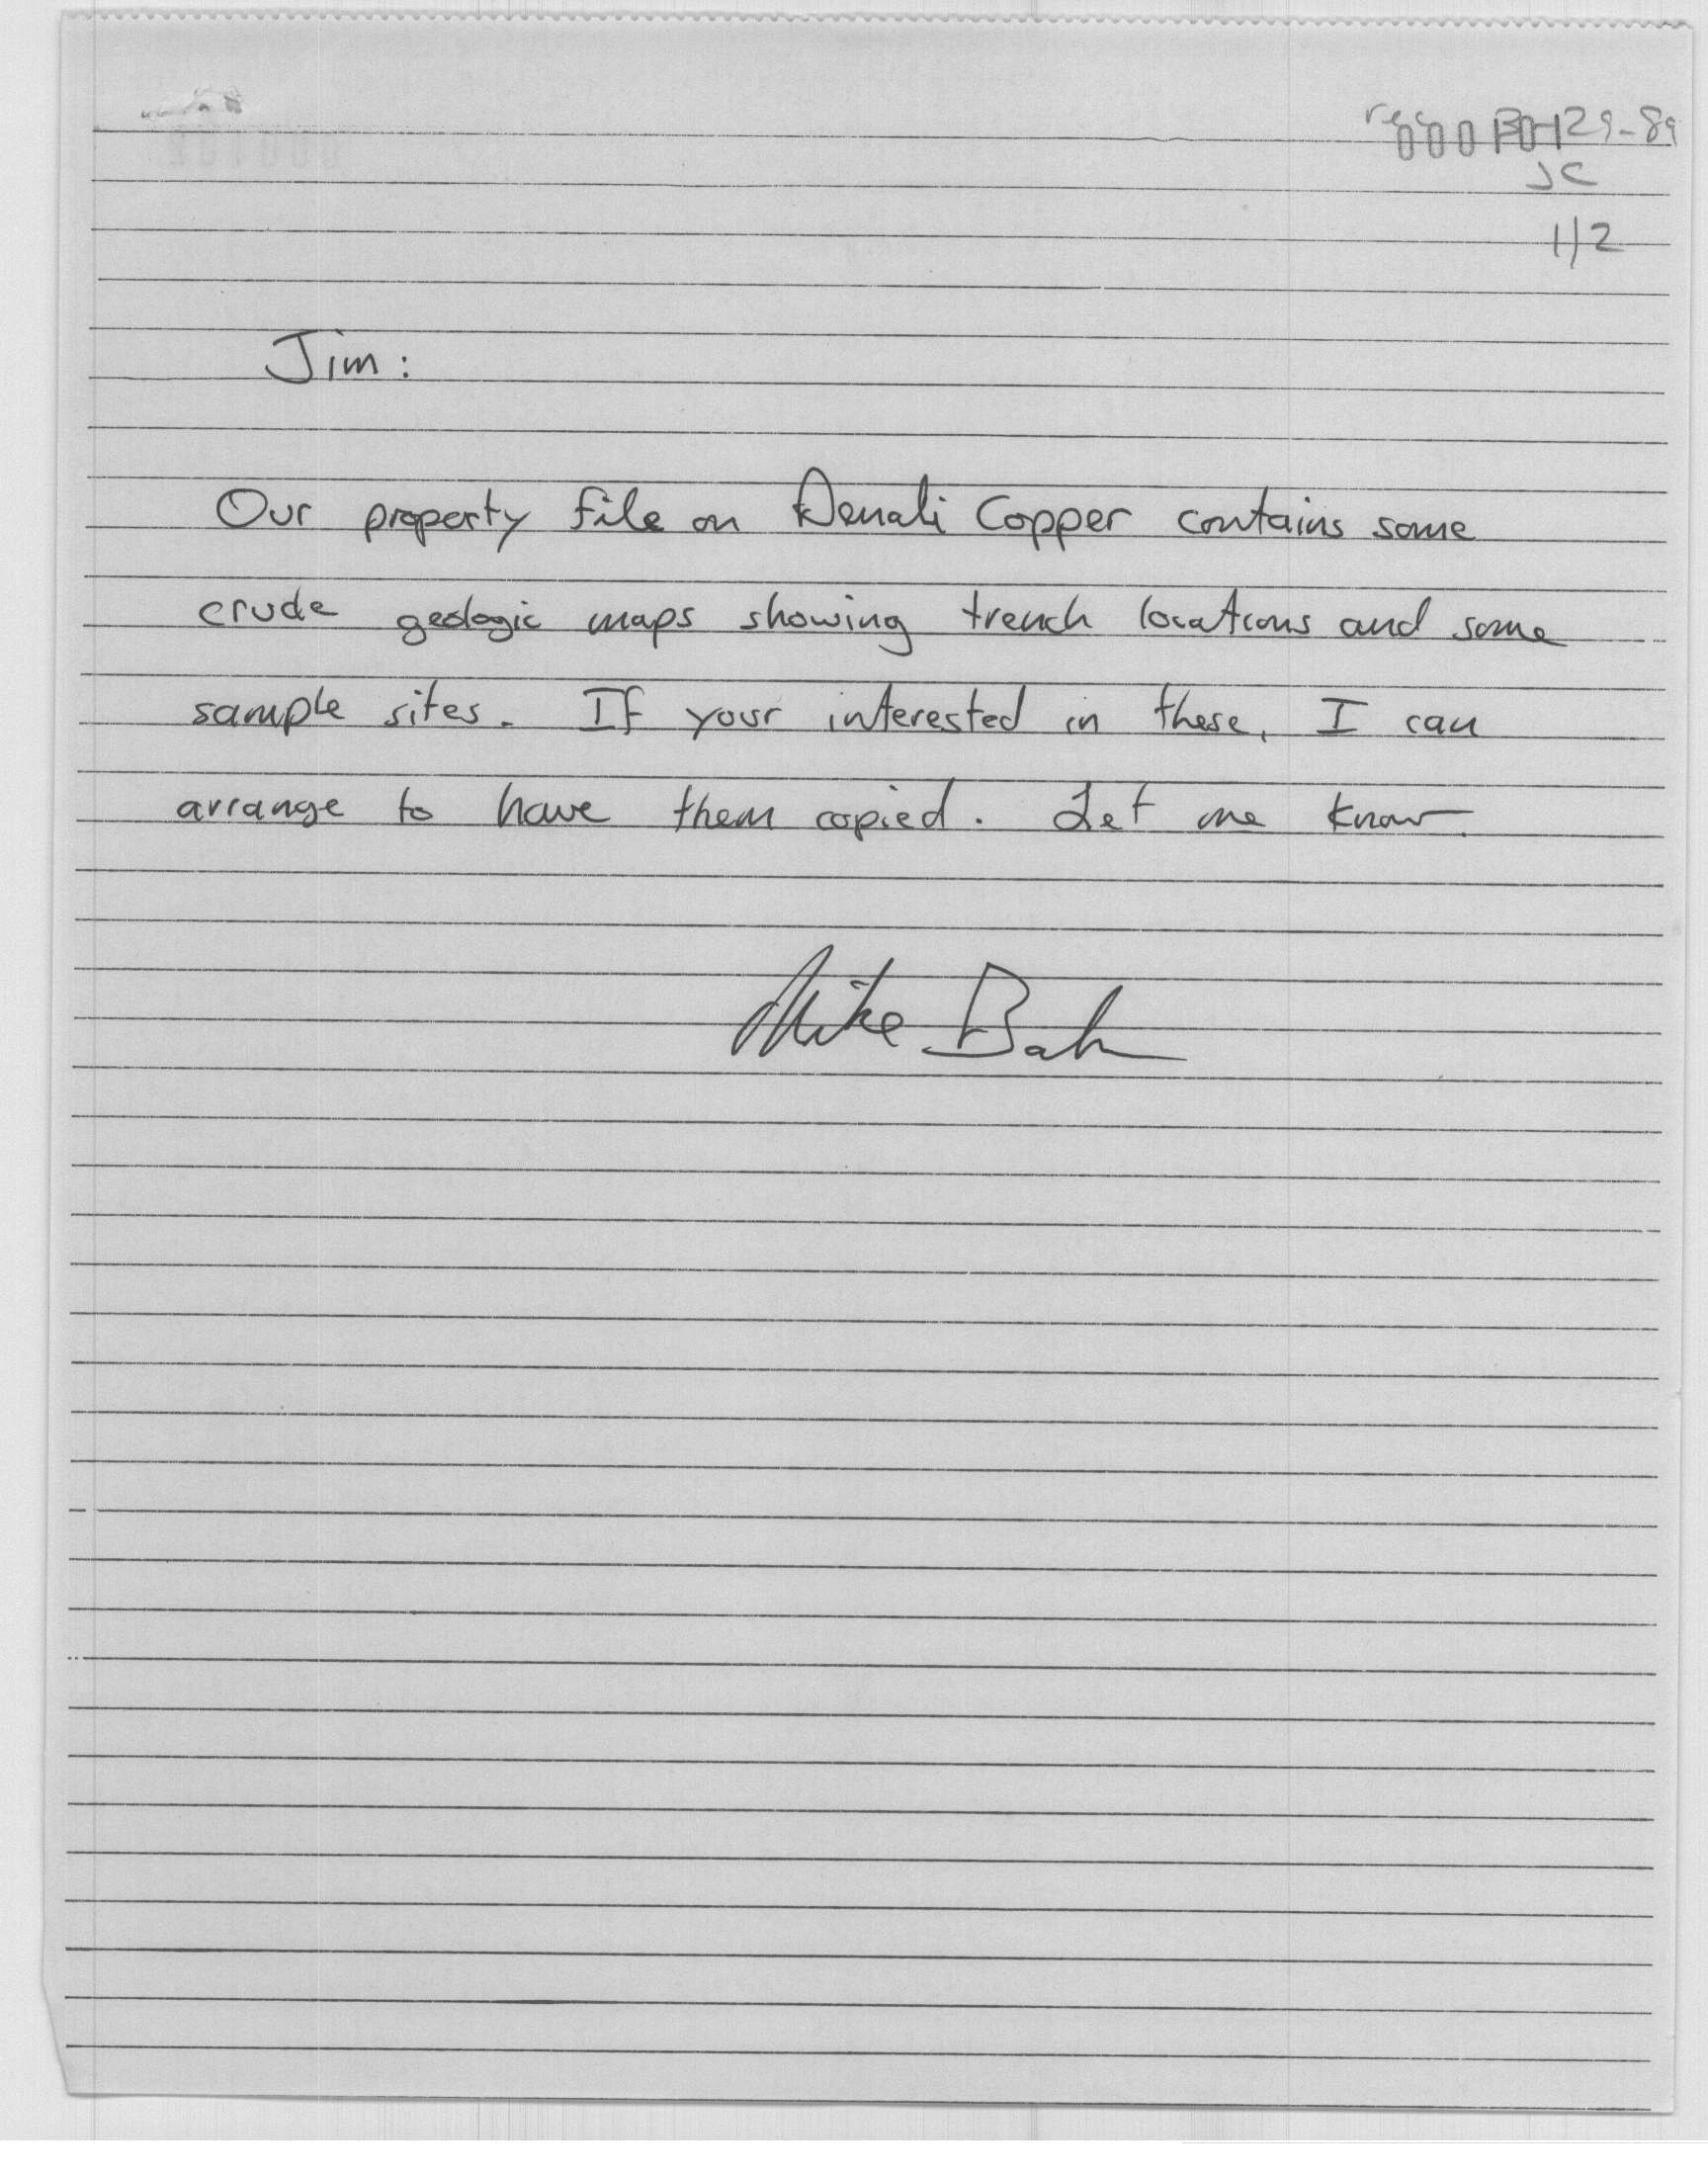 JC
1/2
Jim:
Our property file on Denali Copper contains some
crude geologic maps showing trench locations and some
sample sites. If your interested in these, I can
arrange to have them copied. Let me know.
Mike